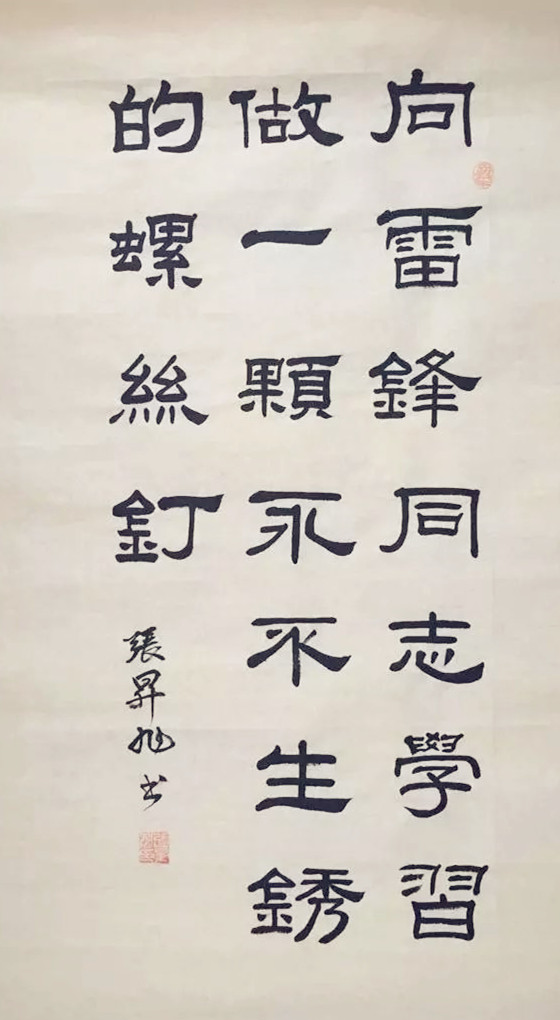 向雷鋒同志學習
做一顆永不生銹
的螺絲釘
張昇旭书